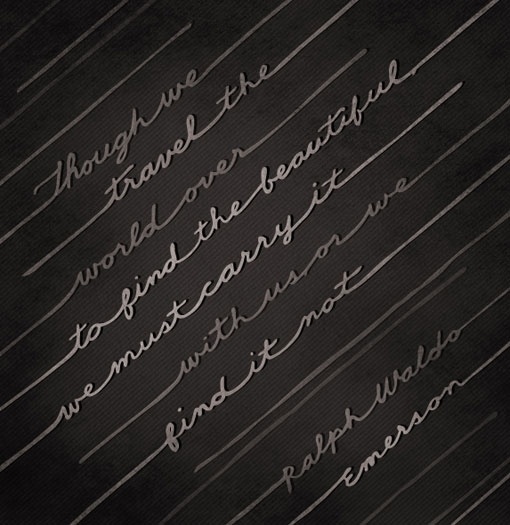 Though we
travel the
world over
to find the beautiful,
we must carry it
with us, or we
find it not
Ralph Waldo
Emerson